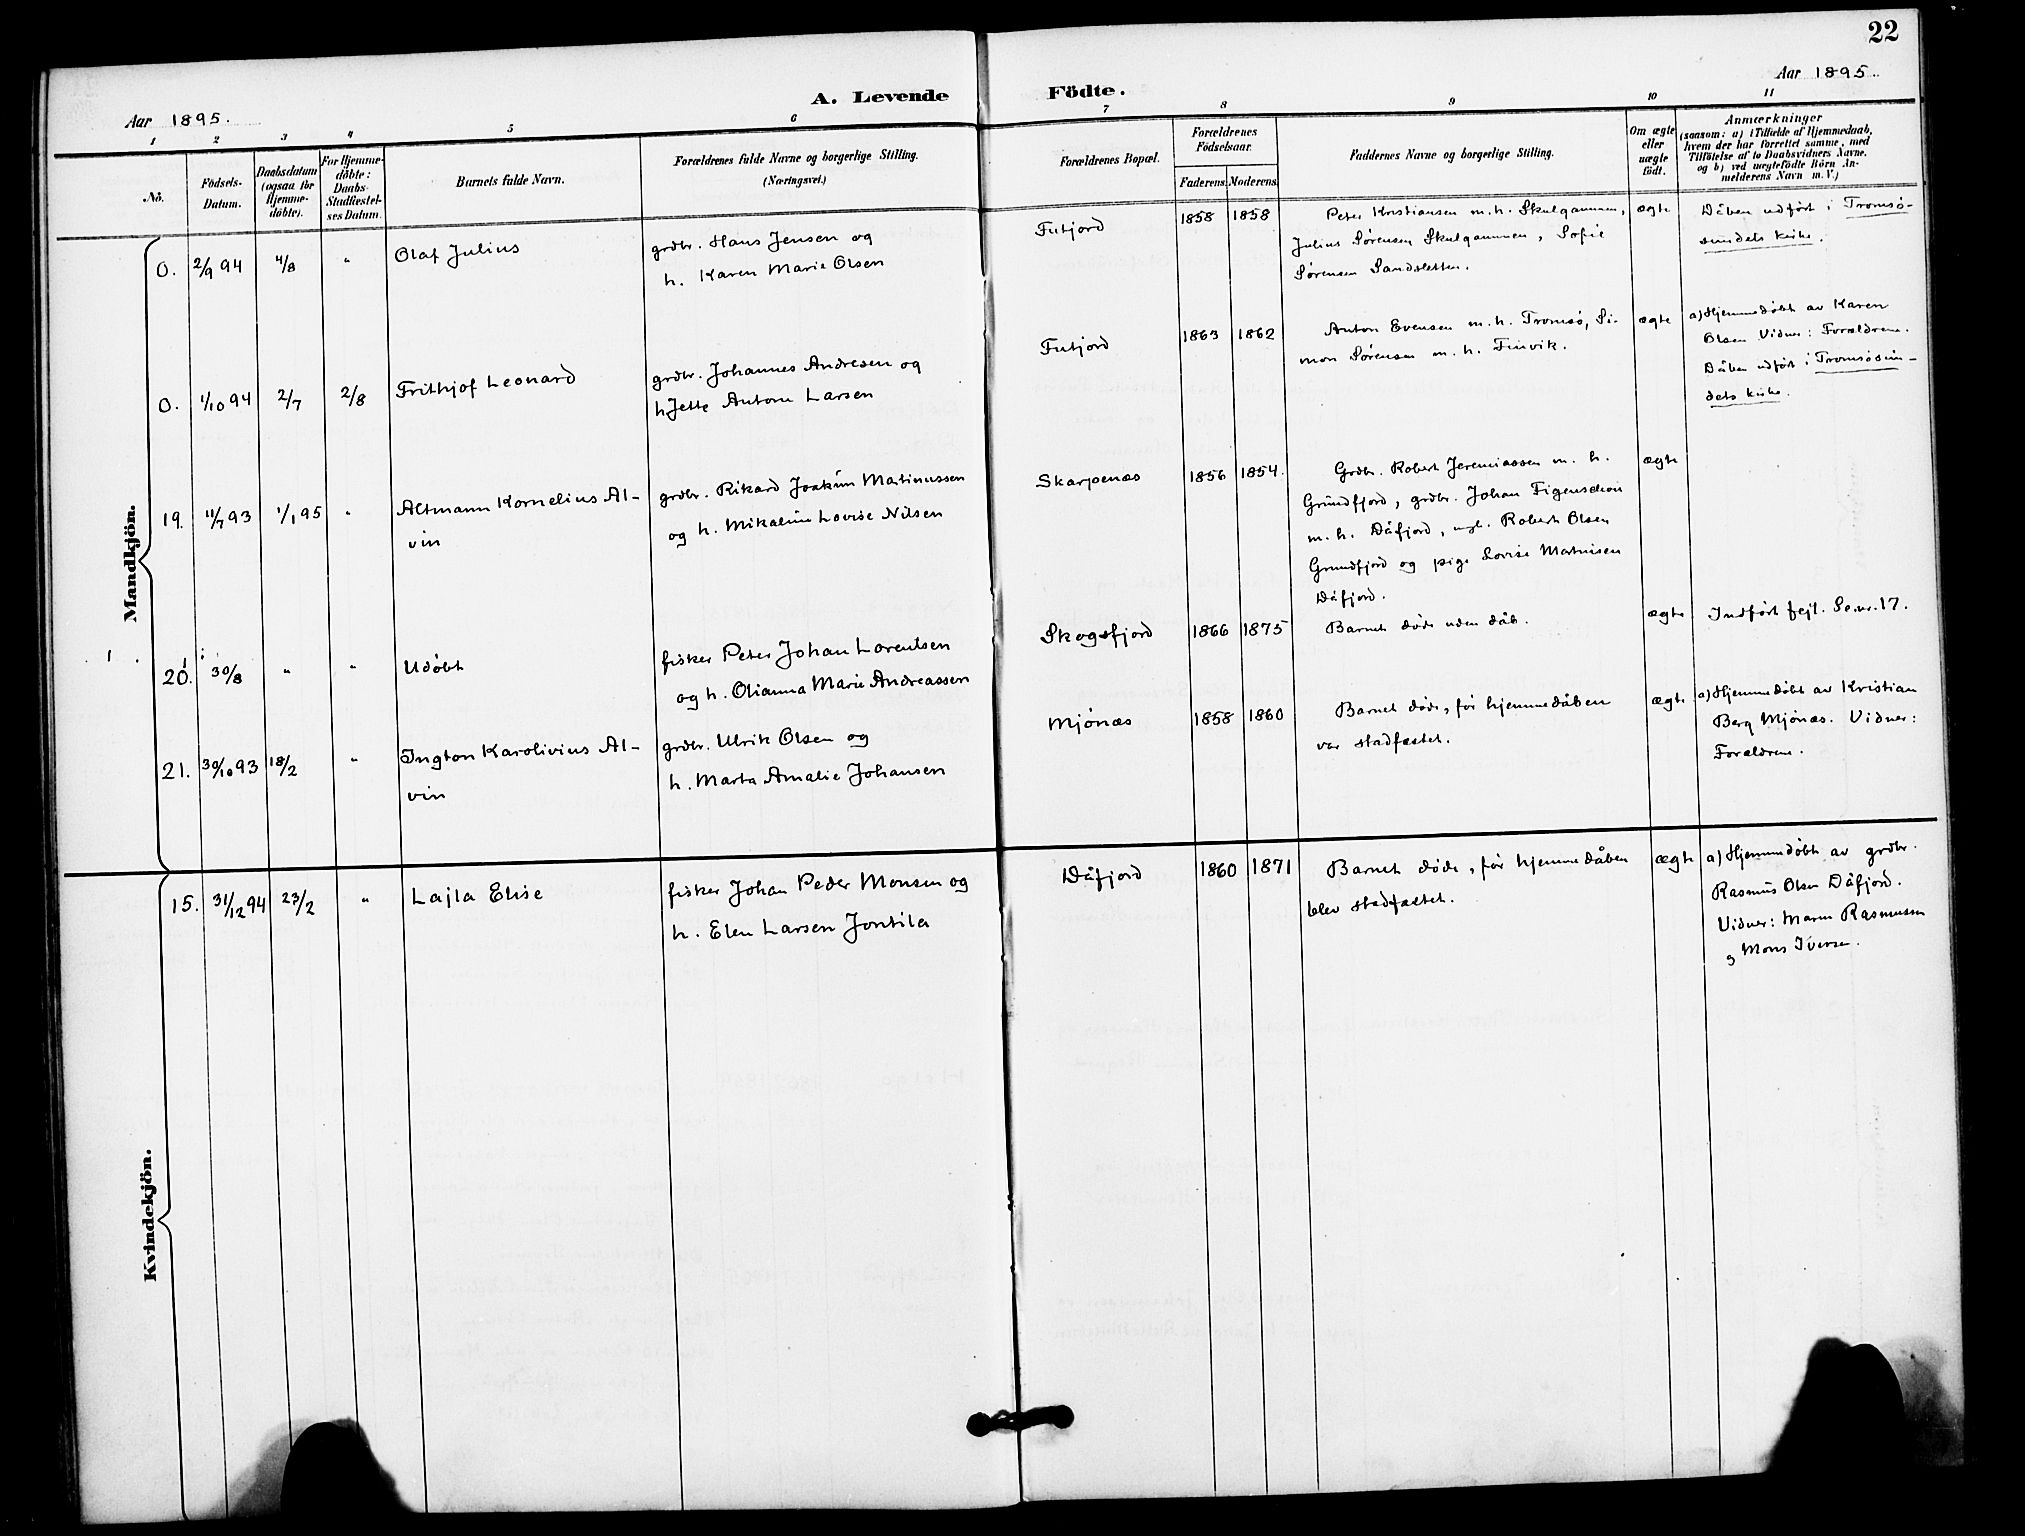 22
Aar 1895.
A. Levende Födte.
Aar 1895.
1 2 3 4 5 6 7 8 9 10 11
No.
Födsels-
Datum.
Daabsdatum
(ogsaa for
Hjemme-
döbte).
For Hjemme-
döbte:
Daabs-
Stadfæstel-
ses Datum.
Barnets fulde Navn.
Forældrenes fulde Navne og borgerlige Stilling.
(Næringsvei.)
Forældrenes Bopæl.
Forældrenes
Födselsaar.
Faderens. Moderens.
Faddernes Navne og borgerlige Stilling.
Om ægte
eller
uægte
födt.
Anmærkninger
(saasom: a) i Tilfælde af Hjemmedaab,
hvem der har forrettet samme, med
Tilföielse af to Daabsvidners Navne,
og b) ved uægtefödte Börn An-
melderens Navn m. V.)
Mandkjön.
O. 2/9 94 4/8 " Olaf Julius
grdbr. Hans Jensen og
h. Karen Marie Olsen
Futjord 1858 1858
Peter Kristiansen m. h. Skulgammen,
Julius Sørensen Skulgammen, Sofie
Sørensen Sandsletten.
ægte
Dåben udført i Tromsø-
sundets kirke.
O. 1/10 94 2/7 2/8 Frithjof Leonard
grdbr. Johannes Andresen og
h Jette Antone Larsen
Futjord 1863 1862
Anton Evensen m. h. Tromsø, Si-
mon Sørensen m. h. Finvik.
ægte
a) Hjemmedøbt av Karen
Olsen Vidner: Forældrene.
Dåben udført i Tromsøsun-
dets kirke.
19. 11/7 93 1/1 95 " Altmann Kornelius Al-
vin
grdbr. Rikard Joakim Martinussen
og h. Mikaline Lovise Nilsen
Skarpenæs 1856 1854.
Grdbr. Robert Jeremiassen m. h.
Grundfjord, grdbr. Johan Figenschou
m. h. Dåfjord, ungk. Robert Olsen
Grundfjord og pige Lovise Martinsen
Dåfjord.
ægte
1.
20. 30/8 " " Udøbt
fisker Peter Johan Lorentsen
og h. Olianna Marie Andreassen
Skogsfjord 1866 1875
Barnet døde uden dåb.
ægte
Indført fejl. Se nr. 17.
21. 30/10 93 18/2 " Ington Karolivius Al-
vin
grdbr. Ulrik Olsen og
h. Marta Amalie Johansen
Mjönæs 1858 1860
Barnet døde, før hjemmedåben
var stadfæstet.
ægte
a) Hjemmedøbt av Kristian
Berg Mjönæs. Vidner:
Forældrene.
Kvindekjön.
15. 31/12 94 23/2 " Lajla Elise
fisker Johan Peder Monsen og
h. Elen Larsen Jontila
Dåfjord 1860 1871
Barnet døde, før hjemmedåben
blev stadfæstet.
ægte
a) Hjemmedøbt av grdbr.
Rasmus Olsen Dåfjord.
Vidner: Maren Rasmussen
og Mons Iversen.